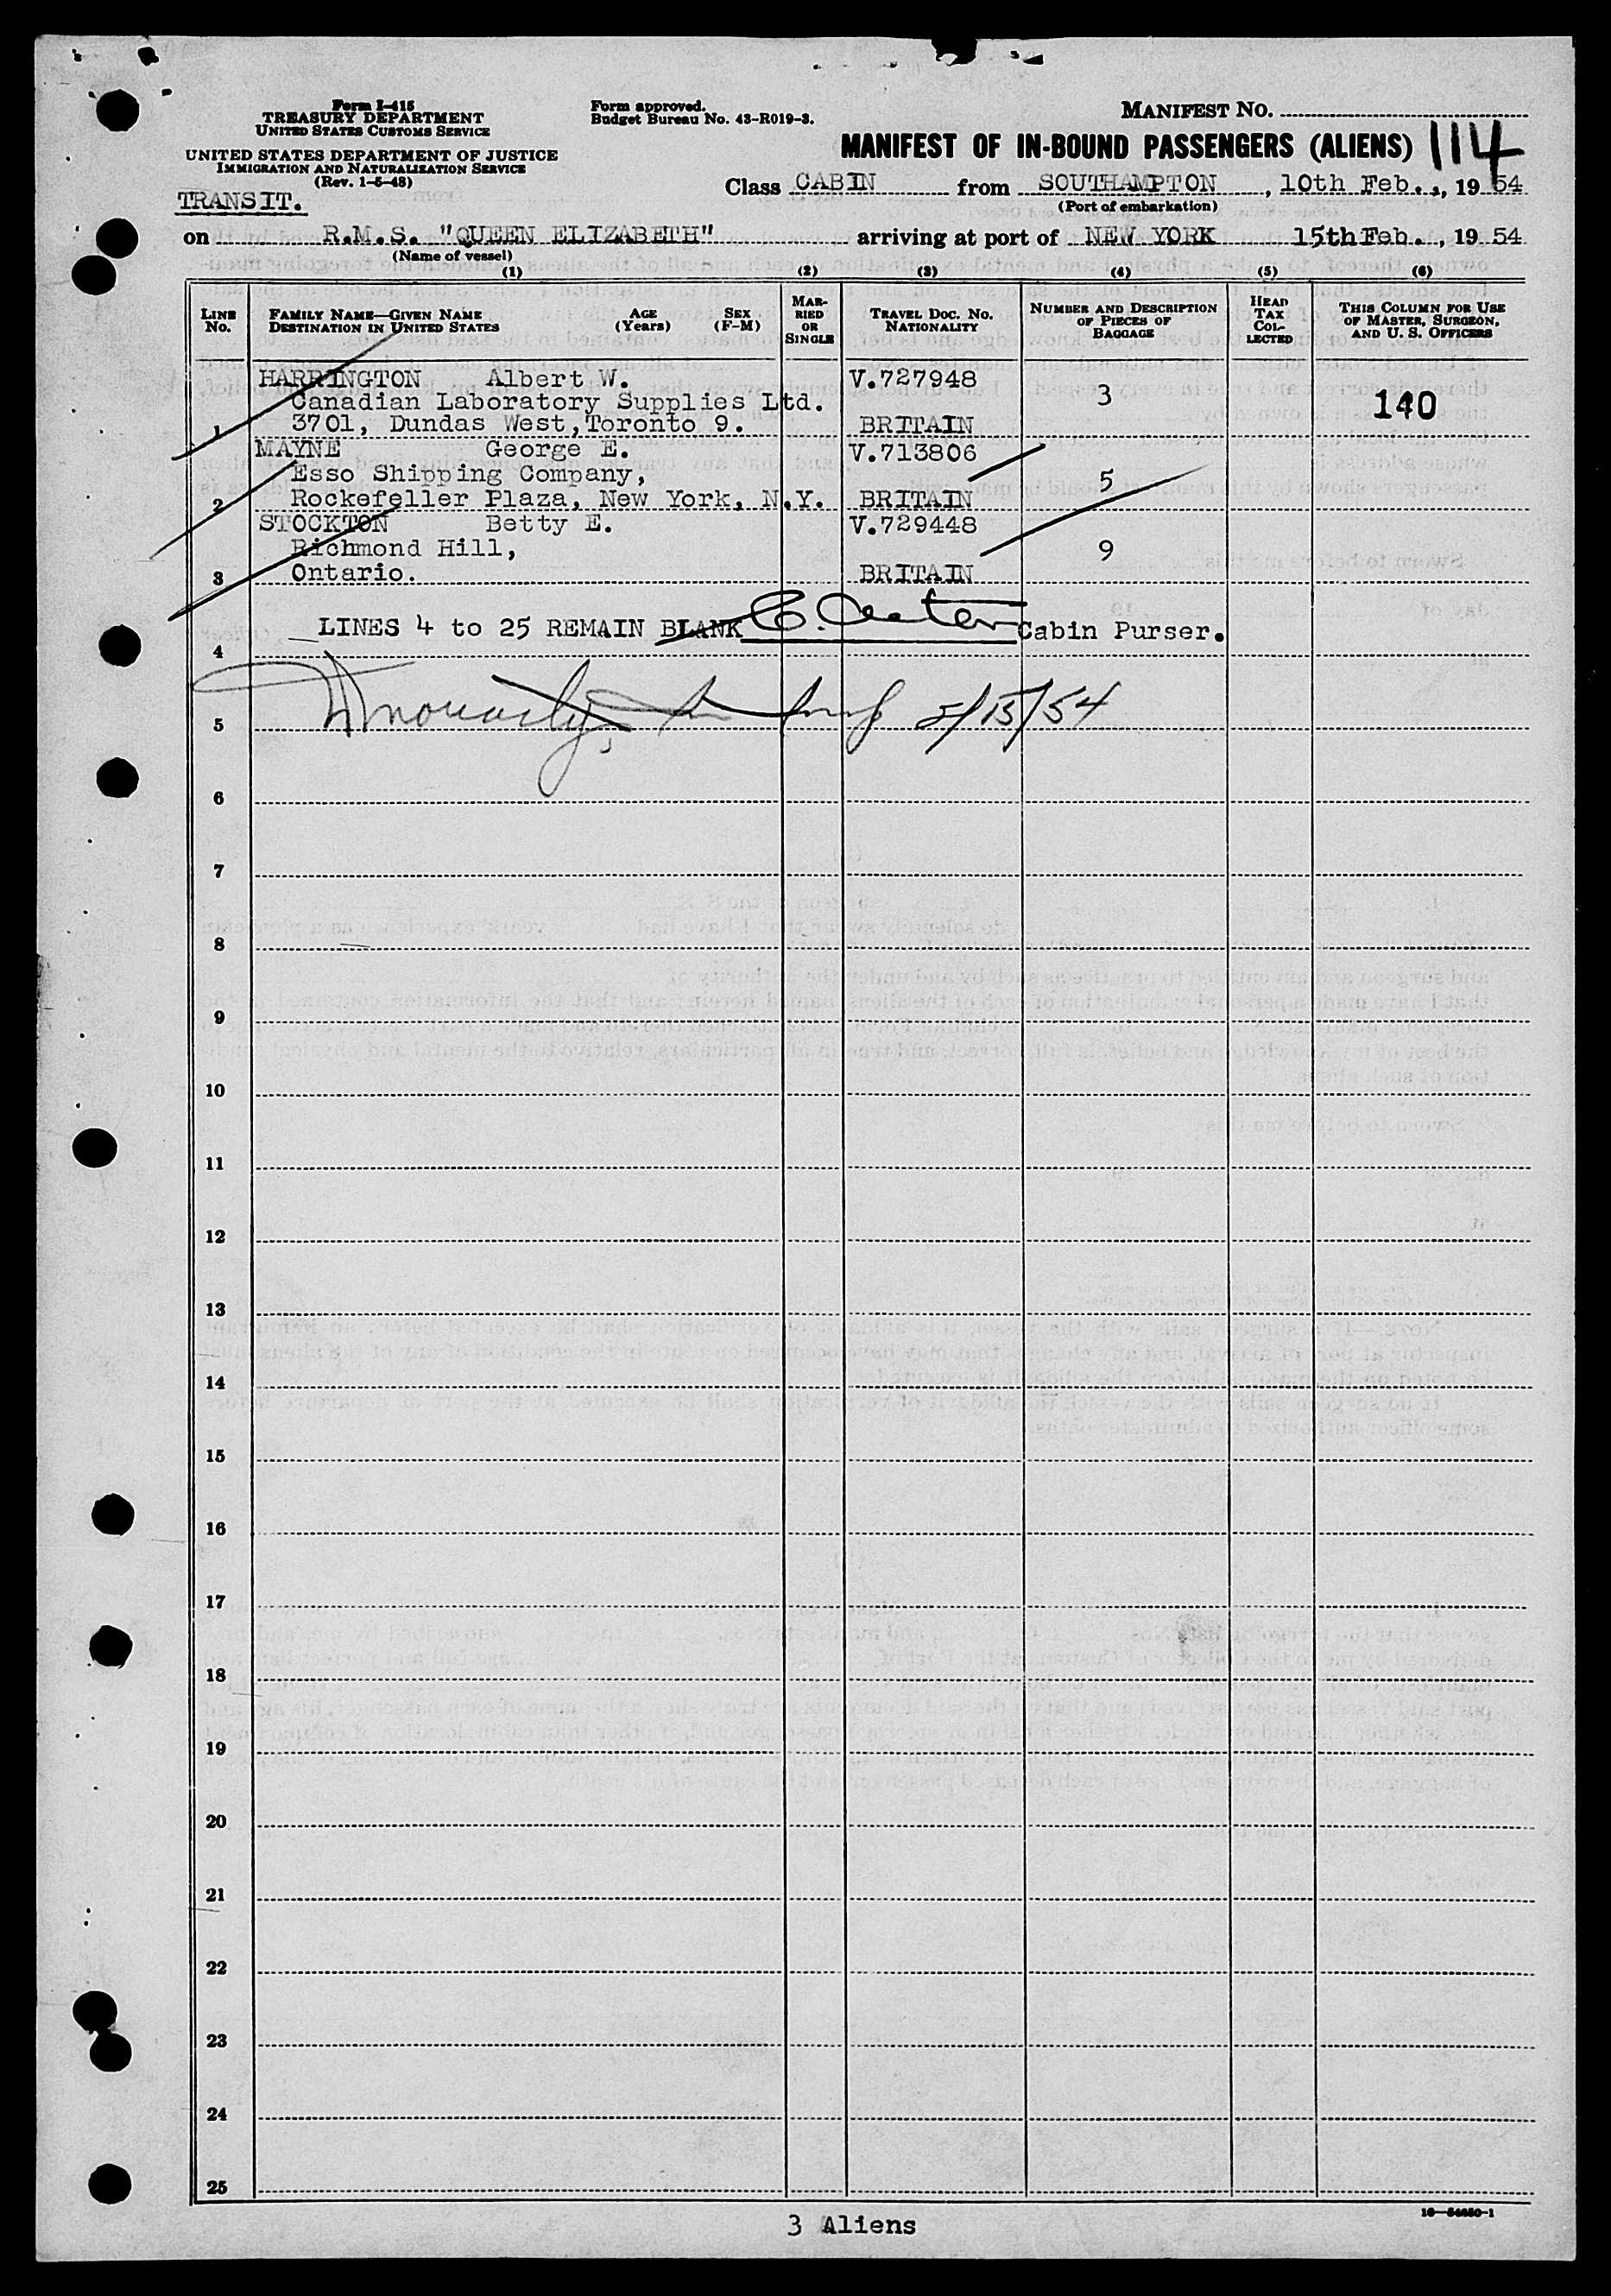 Form I-415
TREASURY DEPARTMENT
UNITED STATES CUSTOMS SERVICE
UNITED STATES DEPARTMENT OF JUSTICE
IMMIGRATION AND NATURALIZATION SERVICE
(Rev. 1-5-48)
TRANSIT.
Form approved.
Budget Bureau No. 43-R019-3.
MANIFEST NO.
MANIFEST OF IN-BOUND PASSENGERS (ALIENS) 114
Class CABIN from SOUTHAMPTON, 10th Feb., 1954
(Port of embarkation)
on R.M.S. "QUEEN ELIZABETH" arriving at port of NEW YORK 15th Feb., 1954
(Name of vessel)
(1) (2) (3) (4) (5) (6)
LINE No.
FAMILY NAME—GIVEN NAME
DESTINATION IN UNITED STATES
AGE (Years)
SEX (F-M)
MARRIED OR SINGLE
TRAVEL DOC. NO. NATIONALITY
NUMBER AND DESCRIPTION OF PIECES OF BAGGAGE
HEAD TAX COLLECTED
THIS COLUMN FOR USE OF MASTER, SURGEON, AND U. S. OFFICERS
HARRINGTON Albert W. V.727948
Canadian Laboratory Supplies Ltd. 3 140
1 3701, Dundas West, Toronto 9. BRITAIN
MAYNE George E. V.713806
Esso Shipping Company, 5
2 Rockefeller Plaza, New York, N.Y. BRITAIN
STOCKTON Betty E. V.729448
Richmond Hill, 9
3 Ontario. BRITAIN
LINES 4 to 25 REMAIN BLANK Cabin Purser.
4
5 2/15/54
6
7
8
9
10
11
12
13
14
15
16
17
18
19
20
21
22
23
24
25
3 Aliens